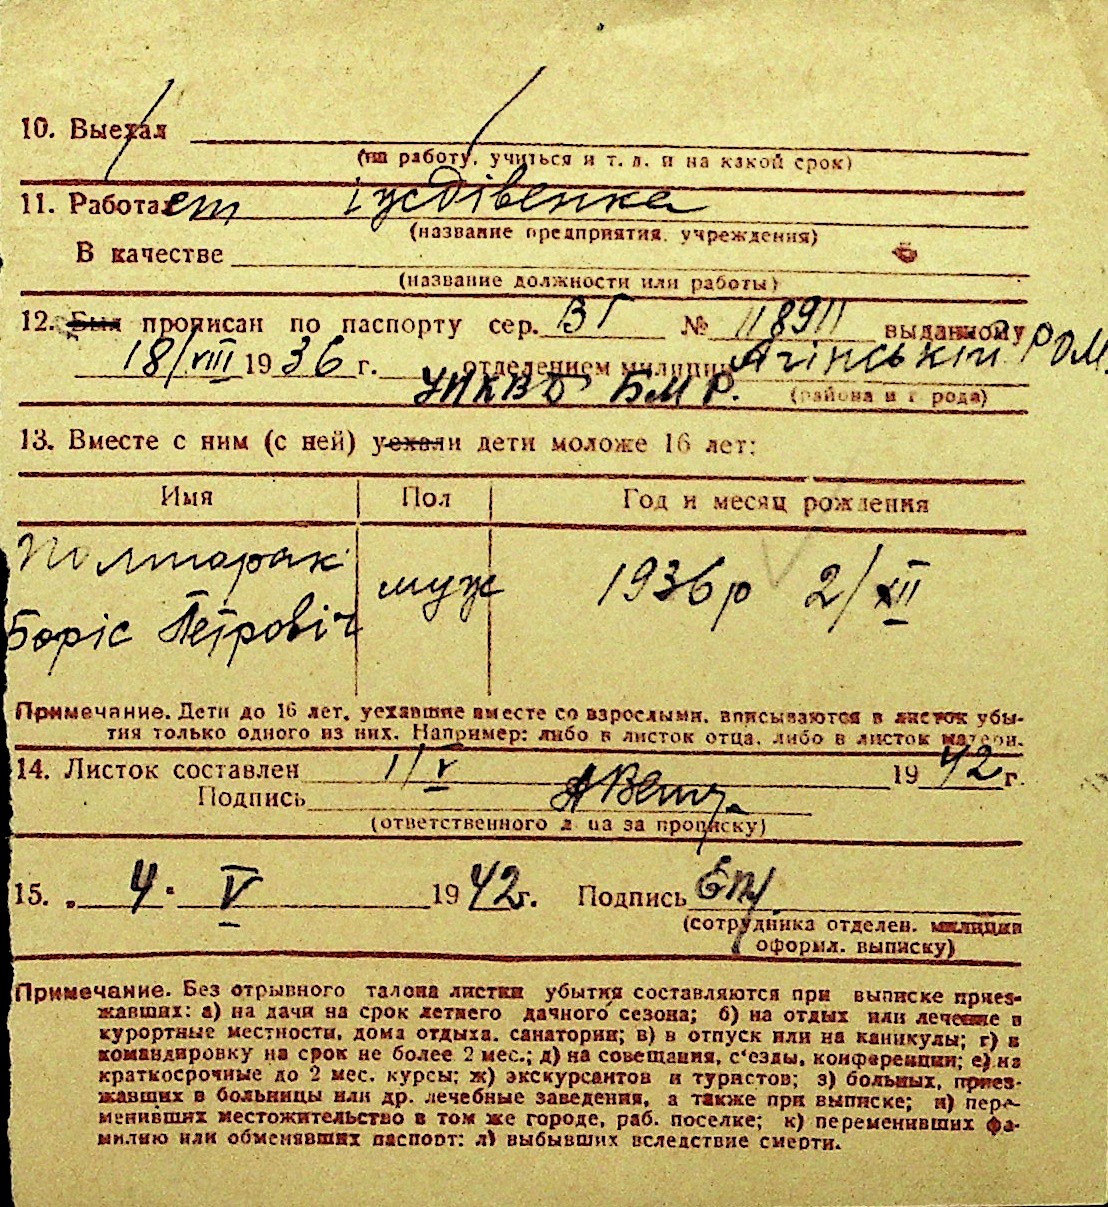 10. Выехал
(на работу, учиться и т. д. и на какой срок)
11. Работает
(название предприятия, учреждения)
В качестве
(название должности или работы)
12. Был прописан по паспорту сер. ВГ № 118911 выданному
18/VIII 1936 г. отделением милиции Агінській РОМ.
УНКВД БМР. (района и города)
13. Вместе с ним (с ней) уехали дети моложе 16 лет:
Имя Пол Год и месяц рождения
Полторак
муж 1936 р 2/XII
Боріс Петровіч
Примечание. Дети до 16 лет, уехавшие вместе со взрослыми, вписываются в листок убы-
тия только одного из них. Например: либо в листок отца, либо в листок матери.
14. Листок составлен 1/V 1942 г.
Подпись
(ответственного лица за прописку)
15. „ 4. V 1942 г. Подпись
(сотрудника отделен. милиции
оформл. выписку)
Примечание. Без отрывного талона листки убытия составляются при выписке приез-
жавших: а) на дачи на срок летнего дачного сезона; б) на отдых или лечение в
курортные местности, дома отдыха, санатории; в) в отпуск или на каникулы; г) в
командировку на срок не более 2 мес.; д) на совещания, с'езды, конференции; е) на
краткосрочные до 2 мес. курсы; ж) экскурсантов и туристов; з) больных, приез-
жавших в больницы или др. лечебные заведения, а также при выписке; и) пере-
менивших местожительство в том же городе, раб. поселке; к) переменивших фа-
милию или обменявших паспорт; л) выбывших вследствие смерти.